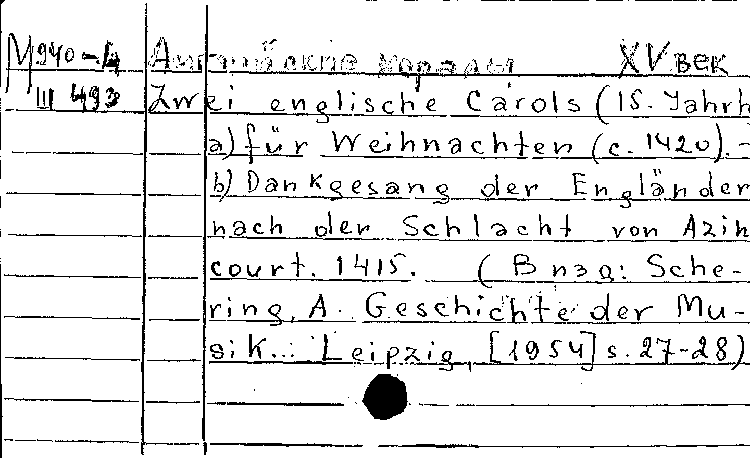 М940-4 Английские хоралы XV век
III 493 Zwei englische Carols (15. Jahrh
a) für Weihnachten (c. 1420). -
b) Dankgesang der Engländer
nach der Schlacht von Azin
court. 1415. (В изд: Sche-
ring, A. Geschichte der Mu-
sik... Leipzig, [1954] s. 27-28)